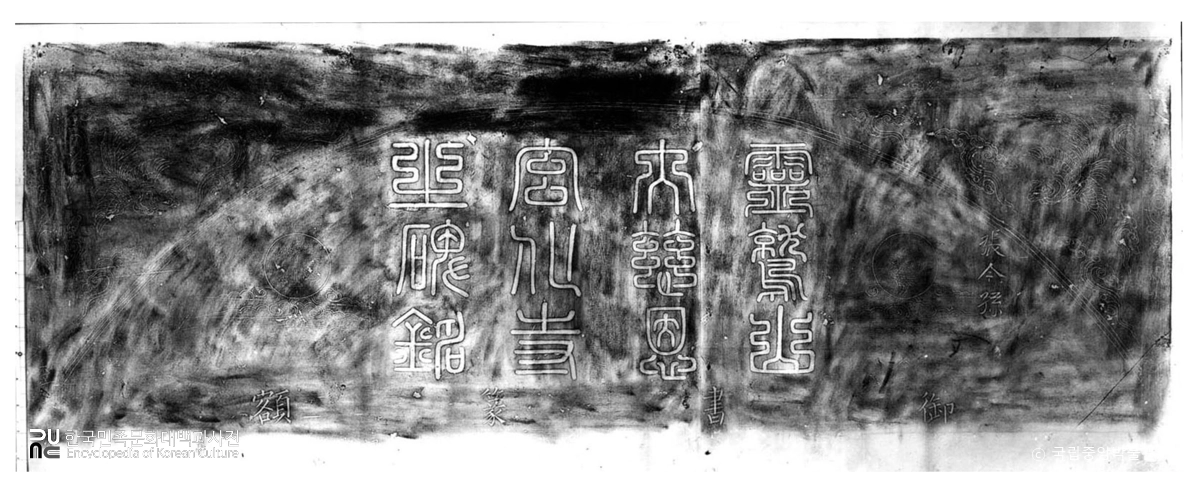 靈鷲山
大慈恩
玄化寺
之碑銘
御書篆額
한국민족문화대백과사전
Encyclopedia of Korean Culture
© 국립중앙박물관